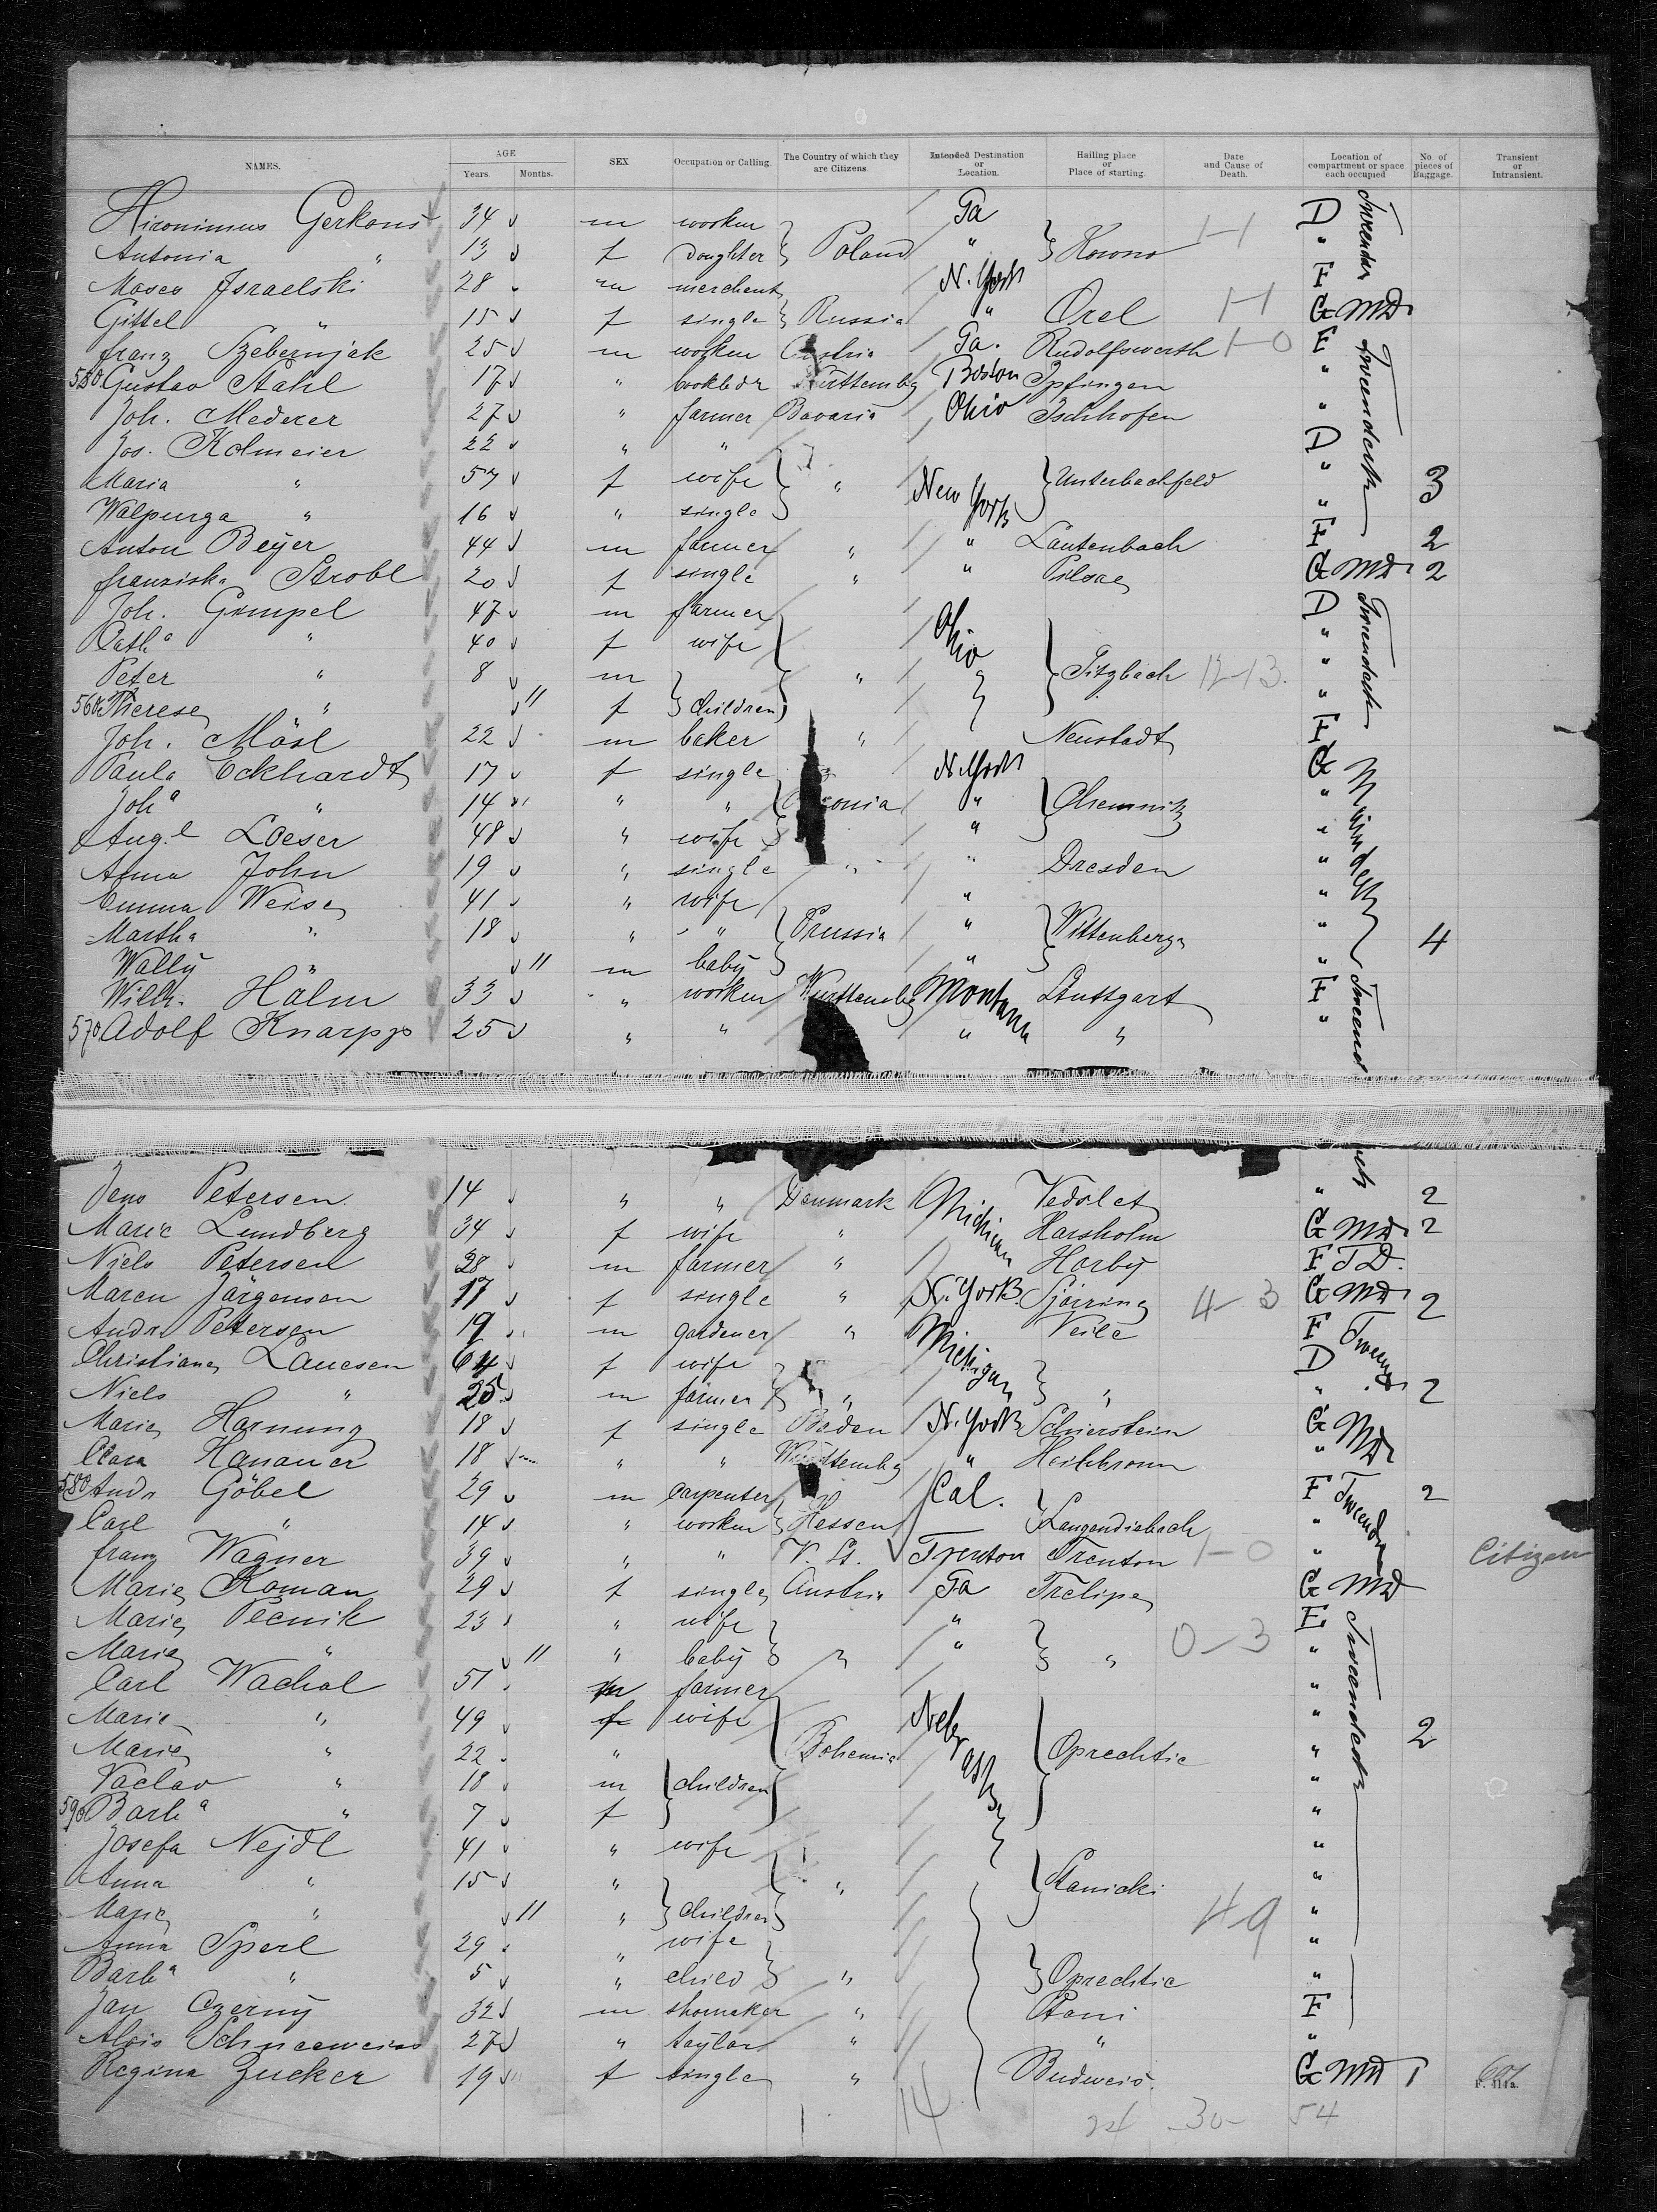 NAMES. AGE Years. Months. SEX Occupation or Calling. The Country of which they are Citizens. Intended Destination or Location. Hailing place or Place of starting. Date and Cause of Death. Location of compartment or space each occupied No. of pieces of Baggage. Transient or Intransient.
Hironimus Gerkons 34 m worker Pa D
Antonia " 13 f doughter Poland " Kowno "
Moses Israelski 28 m merchent N. York F
Gittel " 15 f single Russia " Orel G MD
franz Szebernjak 25 m worker Austria Pa. Rudolfswerth 1-0 F
550 Gustav Stahl 17 " bookbdr Württembg Boston Ipfingen "
Joh. Mederer 27 " farmer Bavaria Ohio Ischhofen "
Jos. Kolmeier 22 " " D
Maria " 57 f wife " New York Unterbachfeld " 3
Walpurga " 16 " single "
Anton Beyer 44 m farmer " " Lautenbach F 2
franziska Strobl 20 f single " " Pilsac G MD 2
Joh. Gumpel 47 m farmer Ohio D
Cathª " 40 f wife "
Peter " 8 m " Titzbach 12-13. "
560 Therese " 11 f children "
Joh. Mösl 22 m baker " Neustadt F
Paula Eckhardt 17 f single N. York G
Johª " 14 " " " Chemnitz "
Aug.e Loeser 48 " wife " "
Anna John 19 " single " " Dresden "
Emma Weise 41 " wife " "
Martha " 18 " " Prussia " Wittenberge " 4
Wally " 11 m baby " "
Wilh. Halm 33 " worker Württembg Montana Stuttgart F
570 Adolf Knarpp 25 " " " " "
Jens Petersen 14 " " Denmark Michigan Vedslet " 2
Marie Lundberg 34 f wife " Harsholm G MD 2
Niels Petersen 28 m farmer " Horby F TD.
Maren Jörgensen 17 f single " N. York Sjörring 4-3 G MD 2
Andr. Petersen 19 m gardener " Michigan Veile F
Christiane Lauesen 64 f wife D
Niels " 25 m farmer " " " 2
Marie Hornung 18 f single Baden N. York Schierstein G MD
Clara Hanauer 18 " " Württembg " Heilbronn "
580 Andr Göbel 29 m Carpenter Cal. F 2
Carl " 14 " worker Hessen Langendiebach "
franz Wagner 39 " " V. St. Trenton Trenton 1-0 " Citizen
Marie Koman 29 f single Austria Pa Trelipe G MD
Marie Pecnik 23 " wife " E
Marie " 11 " baby " " " 0-3 "
Carl Wachal 51 m farmer "
Marie " 49 f wife Nebraska " 2
Marie " 22 " Bohemia Oprechtic "
Vaclav " 18 m children "
590 Barbª " 7 f "
Josefa Nejdl 41 " wife "
Anna " 15 " " Stanicki "
Marie " 11 " children 4-9 "
Anna Sperl 29 " wife "
Barbª " 5 " child " Oprechtic "
Jan Czerny 32 m shomaker " Stani F
Alois Schneeweiss 27 " taylor " " "
Regina Zucker 19 f single " Budweis. G MD 1
14 24 -30- 54